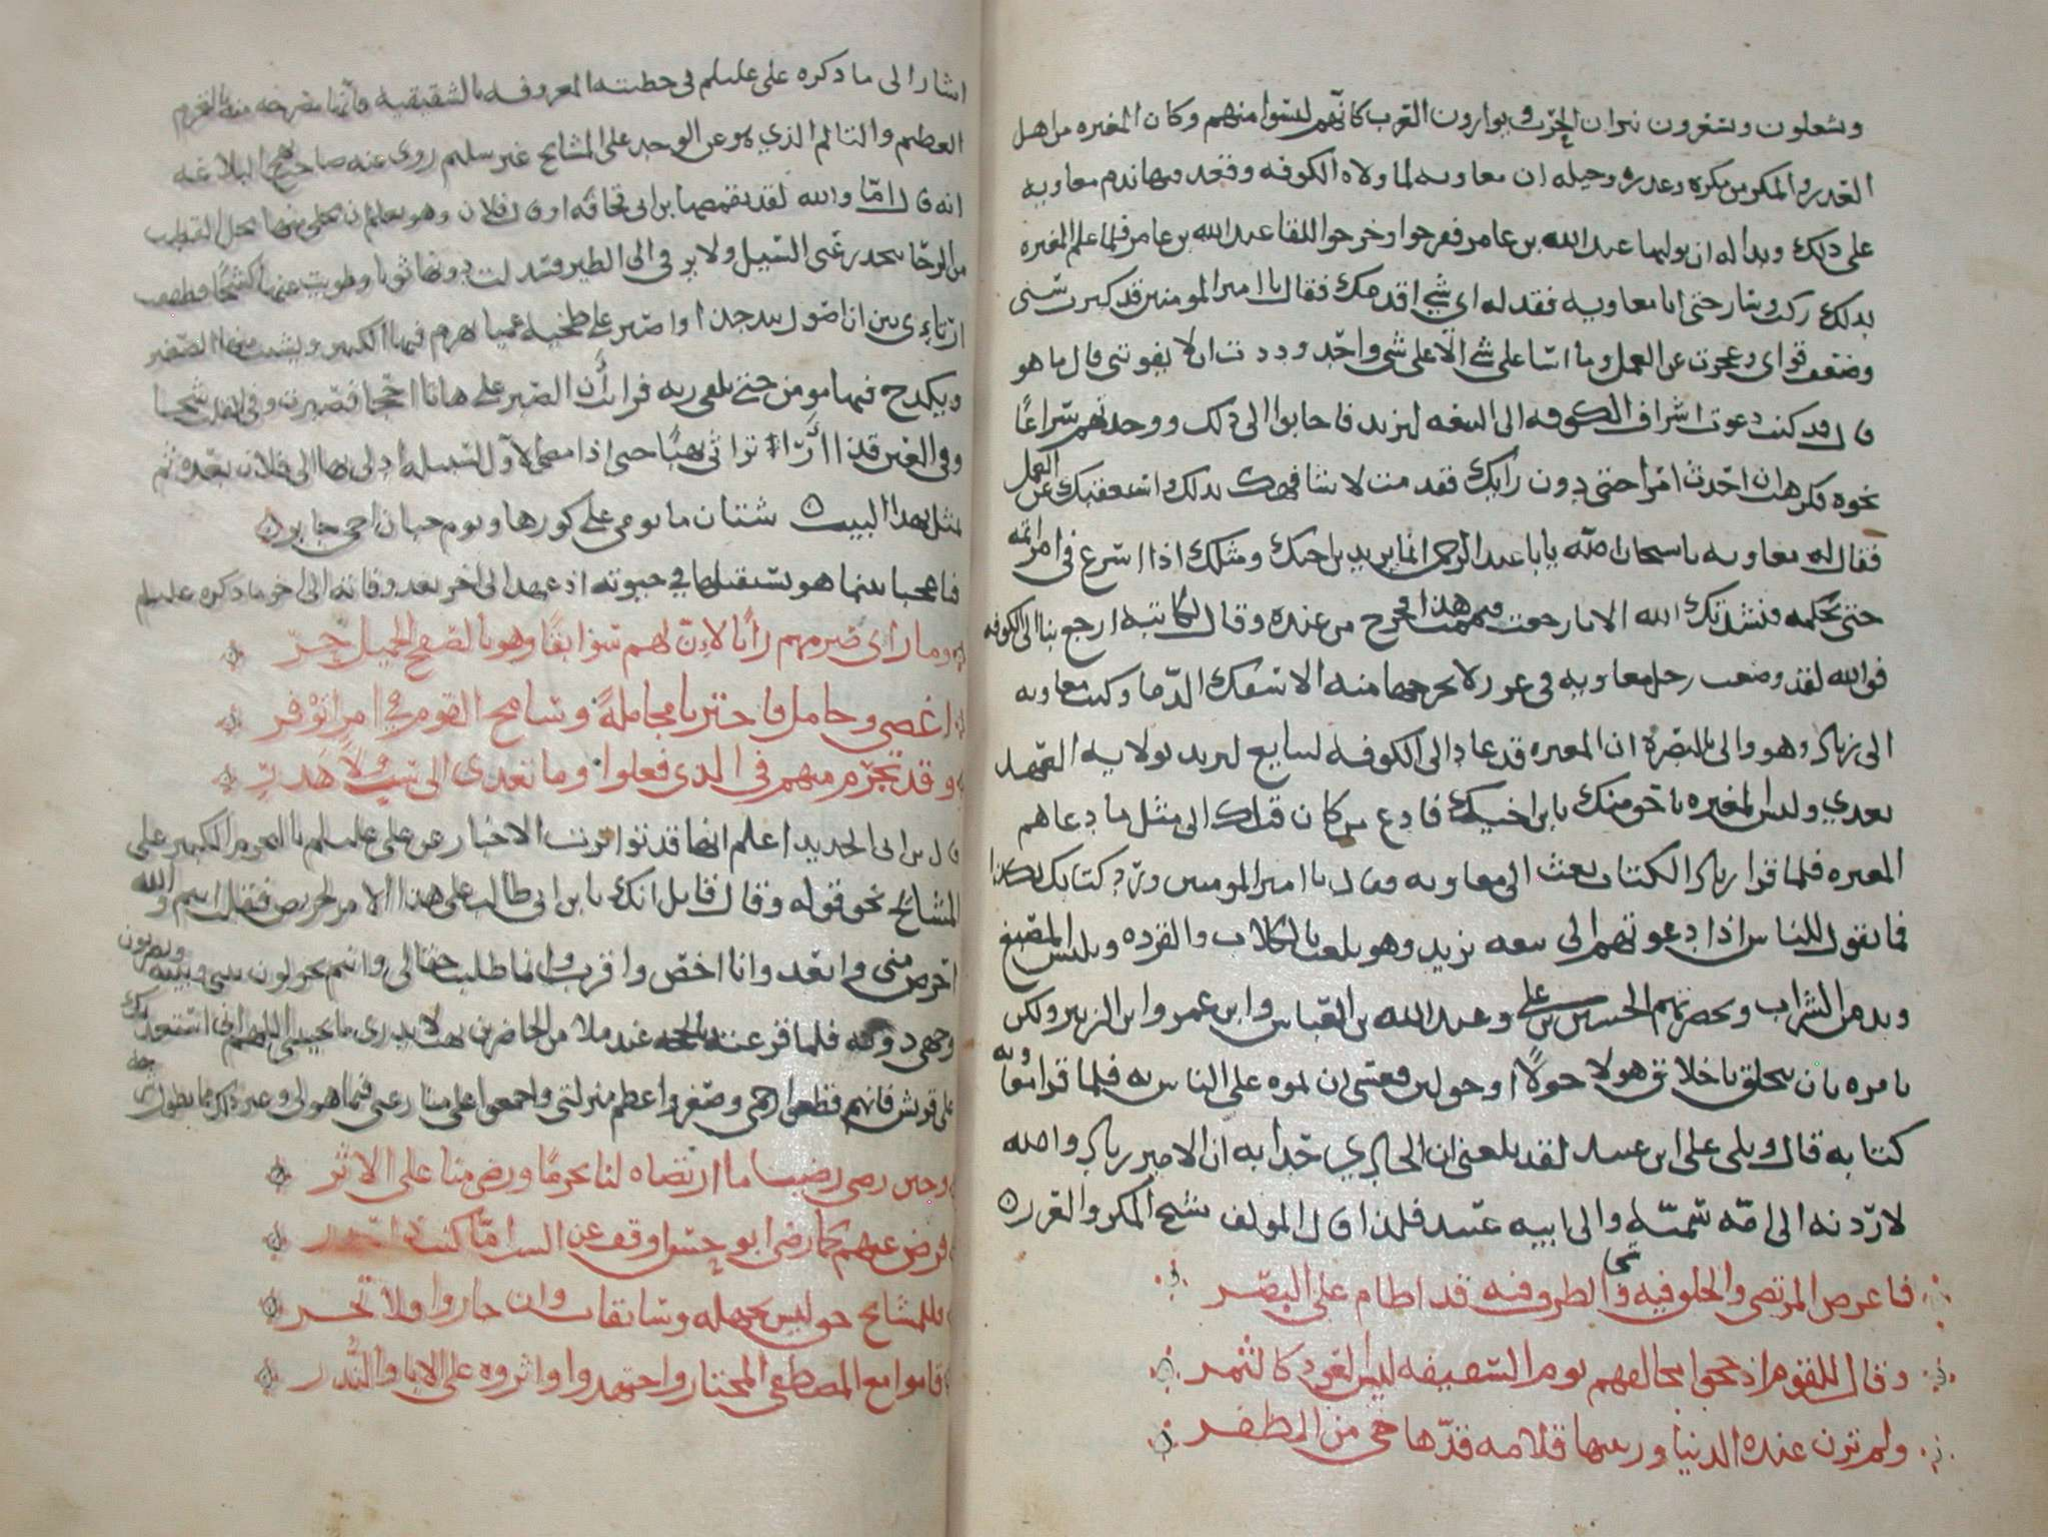 ويشعلون ويسعرون نيران الحرب ويوارون القرب كانهم ليسوا منهم وكان المغيره من اهل
الغدر والمكر من مكره وغدره وحيله ان معاويه لما ولاه الكوفه وقعد فيها ندم معاويه
على ذلك وبدا له ان يوليها عبد الله بن عامر فعرجوا وخرجوا للقا عبد الله بن عامر فلما علم المغيره
بذلك ركب وسار حتى اتا معاويه فقد له اي شي اقدمك فقال يا امير المومنين قد كبرت سني
وضعف قواي وعجزت عن العمل وما اسا على شي الا على شي واحد وددت ان لا يفوتني قال ما هو
قال قد كنت دعوت اشراف الكوفه الى البيعه ليزيد فاجابوا الى ذلك ووجدتهم سراعا
نحوه فكرهت ان احدث امرا حتى دون رايك فقدمت لاشافهك بذلك واستعفيك عن العمل
فقال له معاويه يا سبحان الله يا با عبد الرحمن انما يزيد بن اخيك ومثلك اذا اسرع في امر اتمه
حتى يحكمه فنشدتك الله الا ما رجعت فتممت هذا فخرج من عنده وقال لكاتبه ارجع بنا الى الكوفه
فوالله لقد وضعت رجل معاويه في غرز لا يخرجها منه الا سفك الدما وكتب معاويه
الى زياد وهو والي بالبصره ان المغيره قد عاد الى الكوفه ليبايع ليزيد بولايه العهد
بعدي وليس المغيره باحق منك بابن اخيك فادع من كان قبلك الى مثل ما دعاهم
المغيره فلما قرا زياد الكتاب بعث الى معاويه وقال يا امير المومنين ورد كتابك بكذا
فما يقول للناس اذا دعوتهم الى بيعه يزيد وهو يلعب بالكلاب والقرده ويلبس المصبغ
ويدمن الشراب وبحضرتهم الحسين بن علي وعبد الله بن العباس وابن عمر وابن الزبير ولكن
يامره بان يتخلق باخلاق هولا حولا او حولين فعسى ان نموه على الناس به فلما قرا معاويه
كتابه قال ويلي على ابن عبيد لقد بلغني ان الحادي حدا به ان الامير زياد والله
لاردنه الى امه سميه والى ابيه عبيد فلذا قال المولف شيخ المكر والغدر
فاعرض المرتضى والخلق فيه وفي الطرف فيه قد اطام على البصر
وقال للقوم اذ حجوا مخالفهم يوم السقيفه ليس العود كالثمر
ولم تزن عنده الدنيا وزينتها قلامه قدها حي من الظفر
اشارا الى ما ذكره علي عليلم في خطبته المعروفه بالشقشقيه فانها مصرحه منه بالغرم
العظيم والتالم الذي هو عن الوجد على المشايخ غير سليم روى عنه صاحب نهج البلاغه
انه قال اما والله لقد تقمصها بن ابي قحافه او قال فلان وهو يعلم ان محلي منها محل القطب
من الرحا ينحدر عني السيل ولا يرقى الى الطير فسدلت دونها ثوبا وطويت عنها كشحا وطفقت
ارتاءي بين ان اصول بيد جذا او اصبر على طخيه عميا يهرم فيها الكبير ويشيب فيها الصغير
ويكدح فيها مومن حتى يلقى ربه فرايت ان الصبر على هاتا احجا فصبرت وفي العين قذا شجا
وفي العين قذا ارا تراثي نهبا حتى اذا مضى الاول لسبيله ادلى بها الى فلان بعده ثم
مثل بهذا البيت شتان ما يومي على كورها ويوم حيان اخي جابر
فيا عجبا بينما هو يستقيلها في حيوته اذ عهد الى اخر بعد وفاته الى اخر ما ذكره عليلم
وما راى ضرهم رايا لان لهم سوابقا وهو بالصفح الجميل حر
اغضى وجامل فاختر يا مجامله وسامح القوم في امر توفر
وقد تجرم منهم في الذي فعلوا وما تعدى الى سب ولا هدر
قال بن ابي الحديد اعلم انها قد تواترت الاخبار عن علي عليلم بالتجرم الكبير على
المشايخ نحو قوله وقال قايل انك يا بن ابي طالب على هذا الامر لحريص فقلت انتم والله
احرص مني وابعد وانا اخص واقرب وانما طلبت حقا لي وانتم تحولون بيني وبينه وتضربون
وجهي دونه فلما قرعته بالحجه عند ملا من الحاضرين بهت لا يدري ما يجيبني اللهم اني استعديك
على قريش فانهم قطعوا رحمي وصغروا عظيم منزلتي واجمعوا على منازعتي فيما هو لي وغير ذلك مما يطول شرحه
وحين رضي رضينا ما ارتضاه لنا نحرما ورضي منا على الاثر
فرض عنهم كما رضي ابو حسن او قف عن السب اما كنت ذا حذر
وللمشايخ حق ليس نجهله وسابقات وان جاروا ولا تحر
قاموا مع المصطفى المختار واجتهدوا واثروه على الابا والنذر